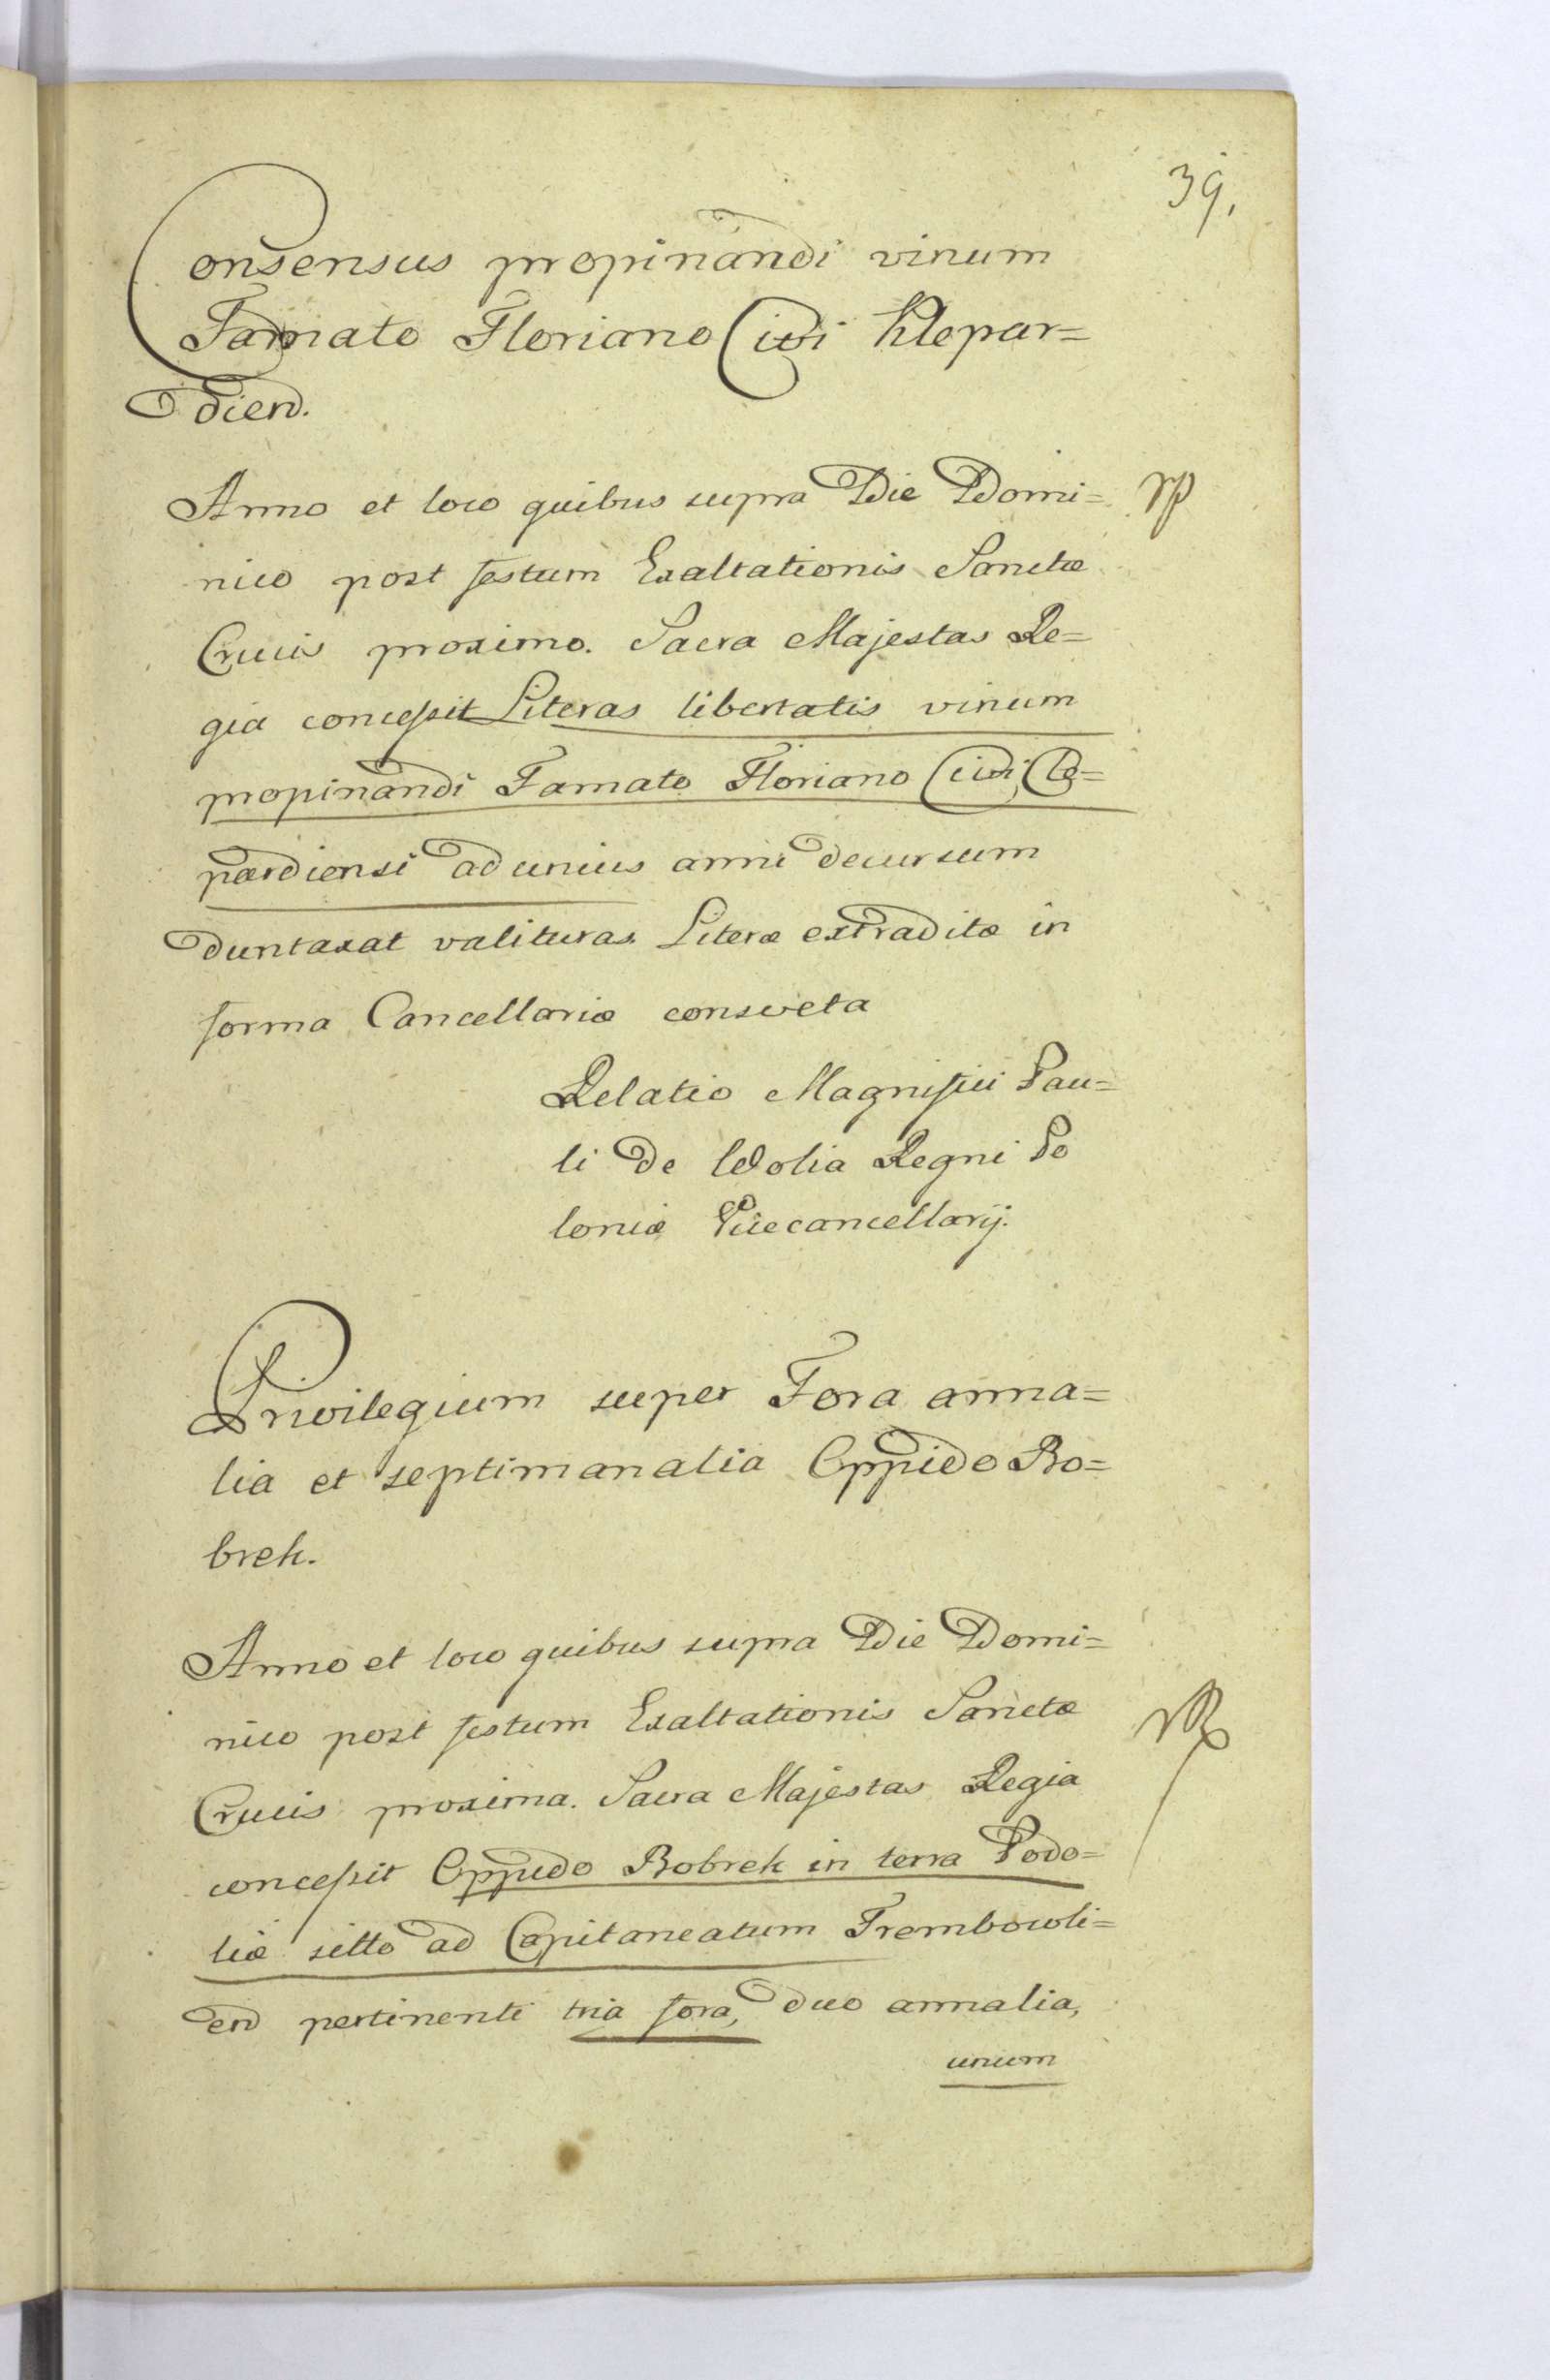 39.
Consensus propinandi vinum
Famato Floriano Civi Klepar=
dien.
Anno et loco quibus supra Die Domi=
nico post festum Exaltationis Sanctæ
Crucis proximo. Sacra Majestas Re=
gia concessit Literas libertatis vinum
propinandi Famato Floriano Civi Cle=
pardiensi ad unius anni decursum
duntaxat valituras. Literæ extraditæ in
forma Cancellariæ consveta
Relatio Magnifici Pau=
li de Wolia Regni Po
loniæ Vicecancellarij.
Privilegium super Fora anna=
lia et septimanalia Oppido Bo=
brek.
Anno et loco quibus supra Die Domi=
nico post festum Exaltationis Sanctæ
Crucis proxima. Sacra Majestas Regia
concessit Oppido Bobrek in terra Podo=
liæ sitto ad Capitaneatum Trembowli=
en pertinenti tria fora, duo annalia,
unum